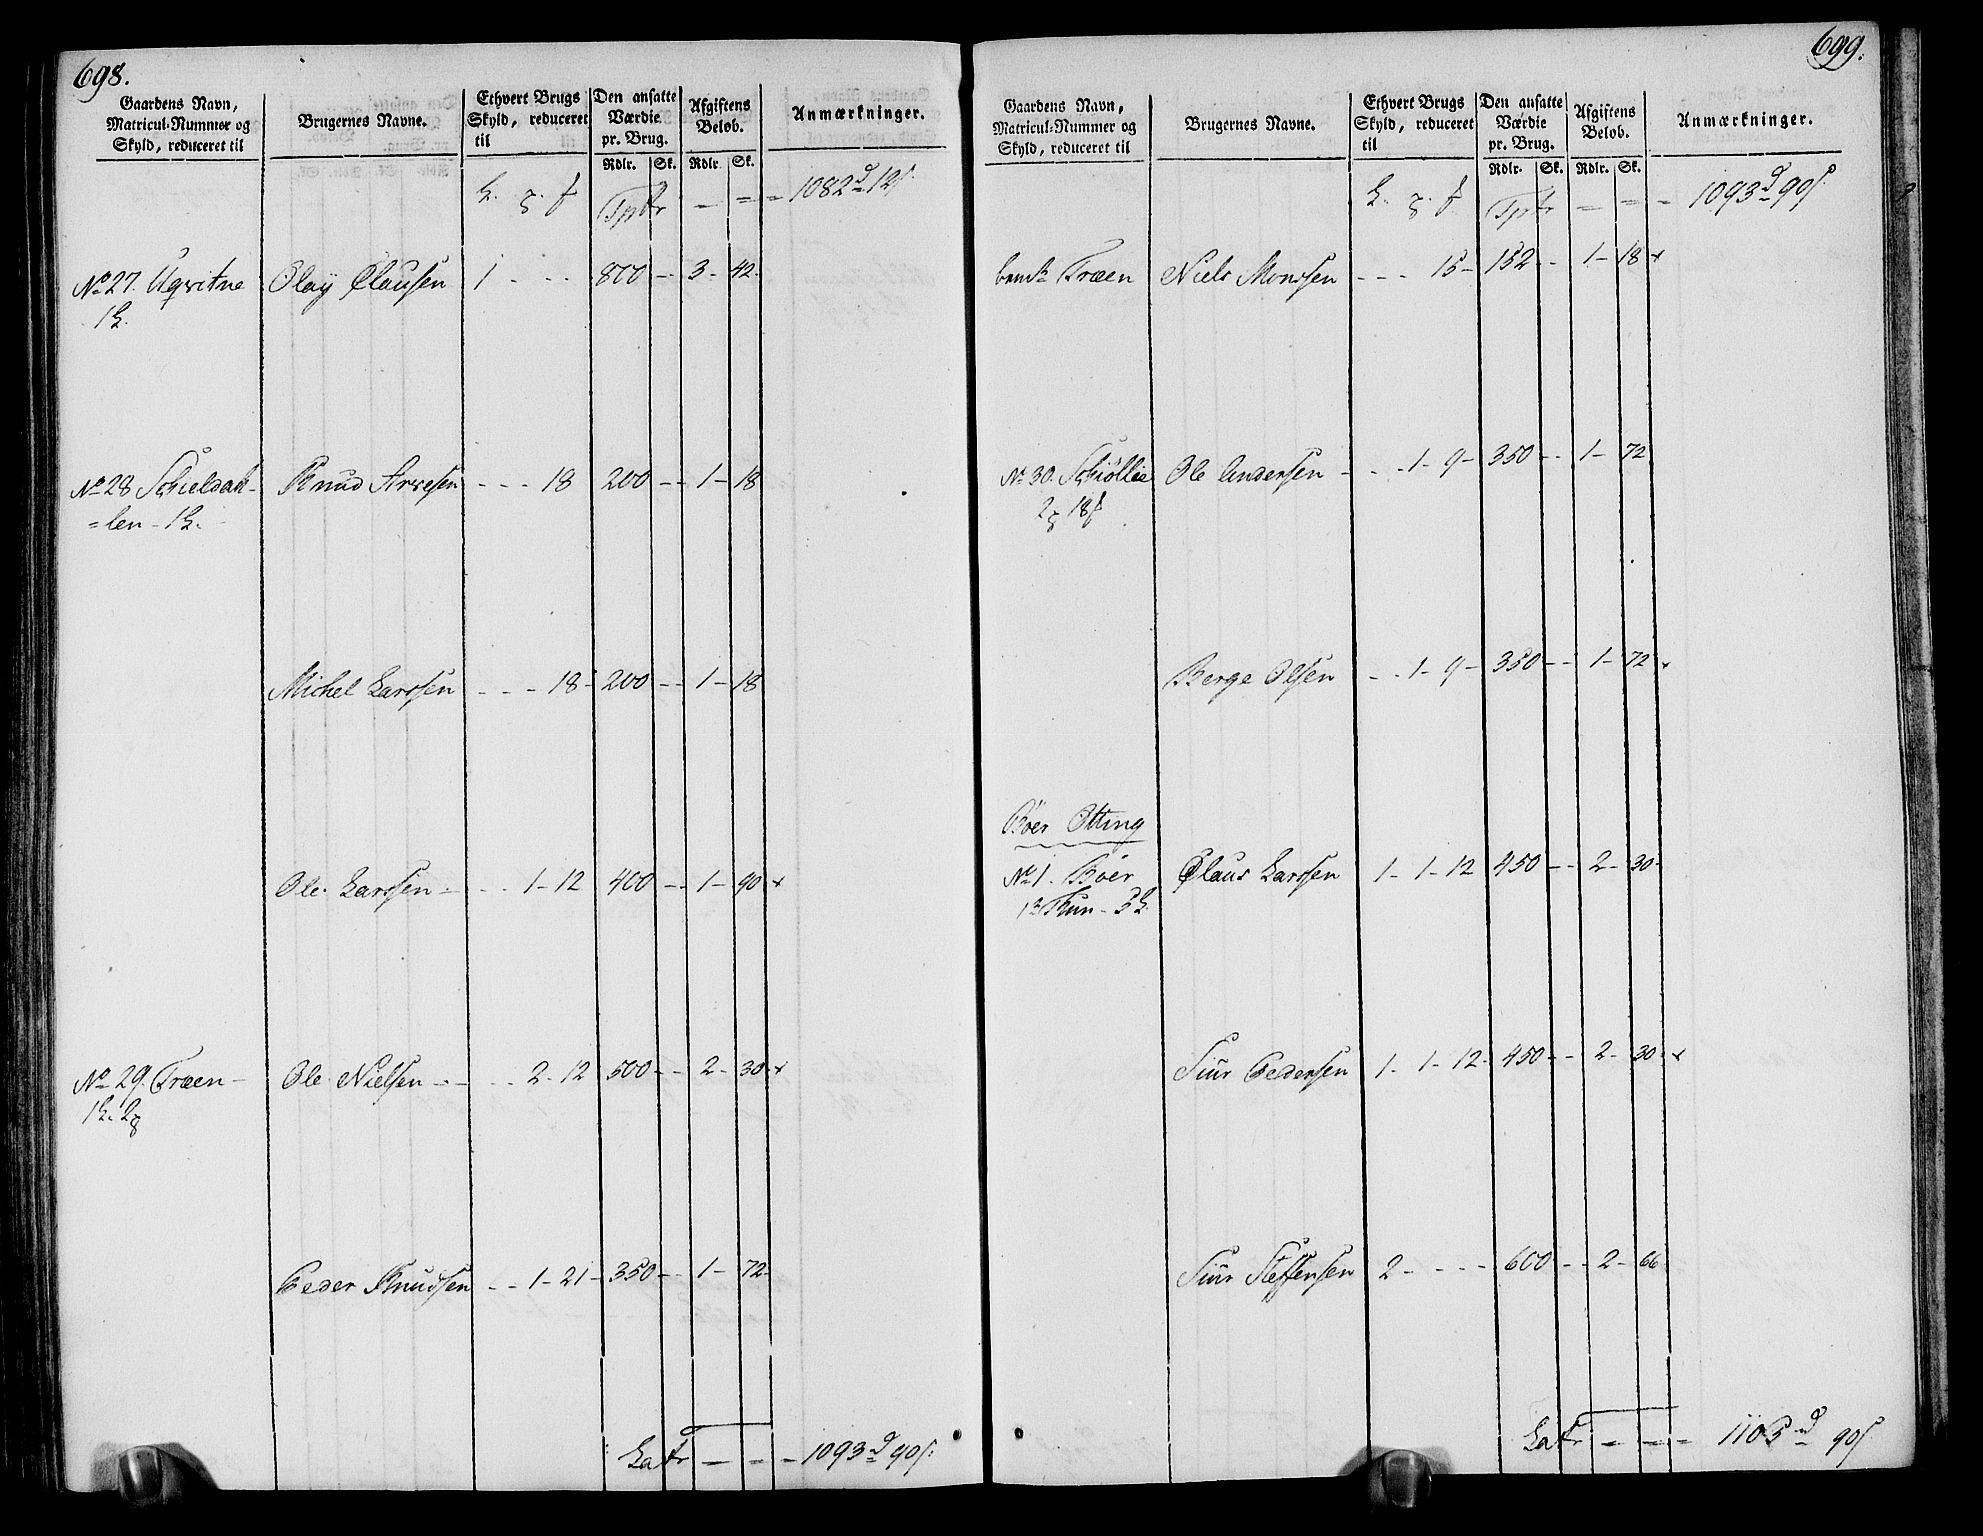 698.
Gaardens Navn, Matricul-Nummer og Skyld, reduceret til | Brugernes Navne. | Ethvert Brugs Skyld, reduceret til | Den ansatte Værdie pr. Brug. Rdlr. Sk. | Afgiftens Beløb. Rdlr. Sk. | Anmærkninger.
Tptr - - - 1082 d 12 s.
No 27. Uqvitne Olay Clausen 1 - - 800 - - 3 - 42.
1
No 28 Schieldah- Knud - - - 18 200 - - 1 - 18
=len - 1
Michel Larssen - - - 18 - 200 - - 1 - 18
Ole Larssen - - - 1 - 12 400 - - 1 - 90 +
No 29. Træen - Ole Nielsen - - - - 2 - 12 500 - - 2 - 30 +
1 2
Peder Knudsen - - 1 - 21 - 350 - - 1 - 72 -
Latr - - - 1093 d 90 s.
699.
Gaardens Navn, Matricul-Nummer og Skyld, reduceret til | Brugernes Navne. | Ethvert Brugs Skyld, reduceret til | Den ansatte Værdie pr. Brug. Rdlr. Sk. | Afgiftens Beløb. Rdlr. Sk. | Anmærkninger.
Tptr - - - 1093 d 90 s.
Træen Niels Monssen - - - 15 - 152 - - 1 - 18 +
No 30. Schiøllie Ole Andersen - - - 1 - 9 - 350 - - 1 - 72
2 18
Berge Olsen - - 1 - 9 - 350 - - 1 - 72 -
Bøer Otting
No 1. Bøer Claus Larssen 1 - 1 - 12 450 - - 2 - 30 -
5
Siur Pedersen 1 - 1 - 12 - 450 - - 2 - 30 - +
Siur Steffensen 2 - - - - 600 - - 2 - 66
Latr - - - 1105 d 90 s